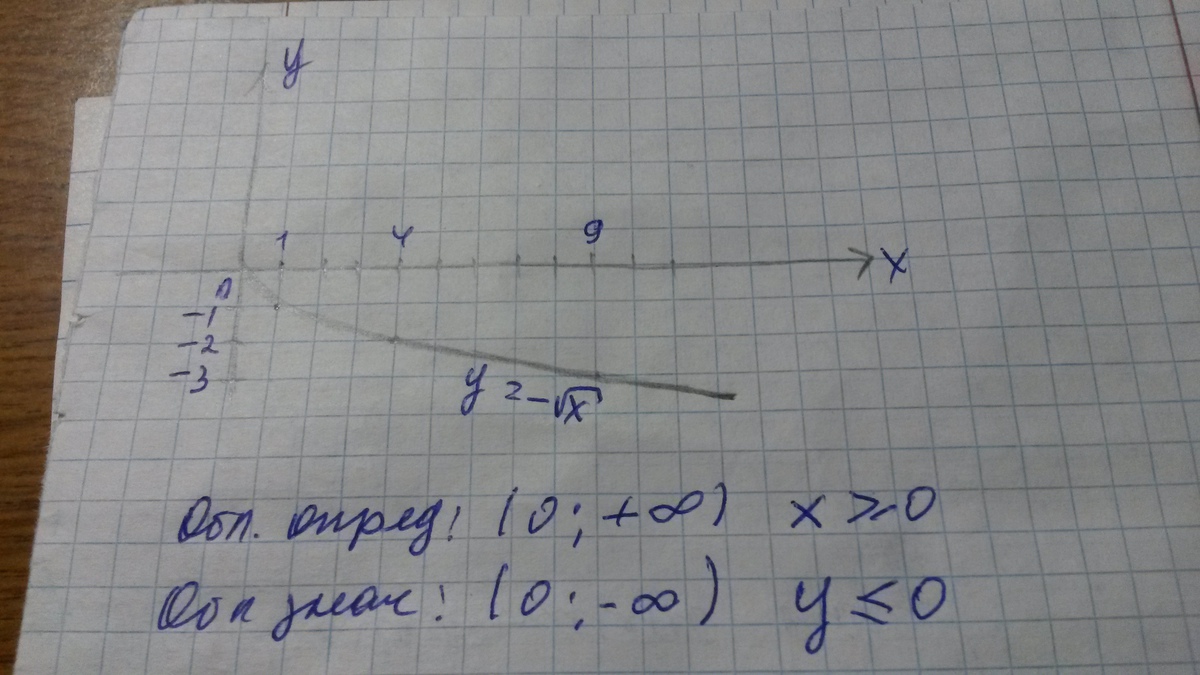 y
1 4 9
x
0
-1
-2
-3
y = -√x
Обл. опред: (0; +∞) x ≥ 0
Обл знач: (0; -∞) y ≤ 0